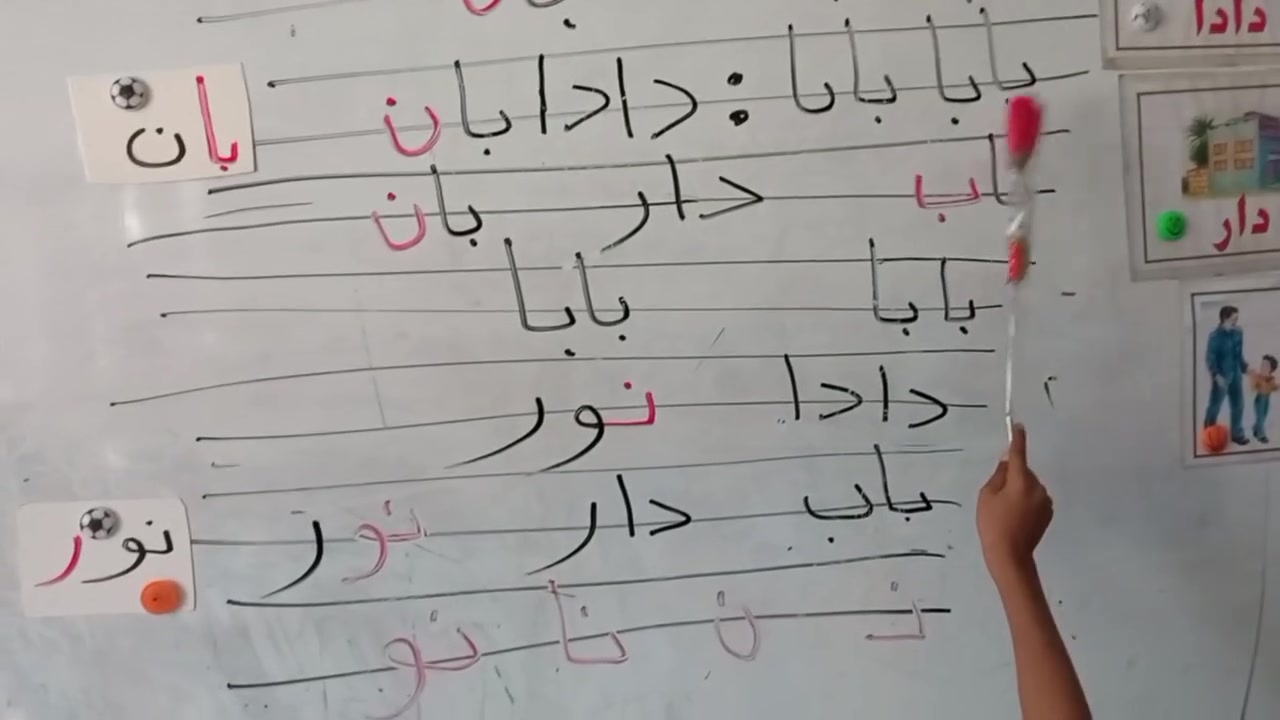 بابا بابا : دادا بان
باب دار بان
بابا بابا
دادا نور
باب دار نور
نـ ن نا نو
بان
نور
دادا
دار